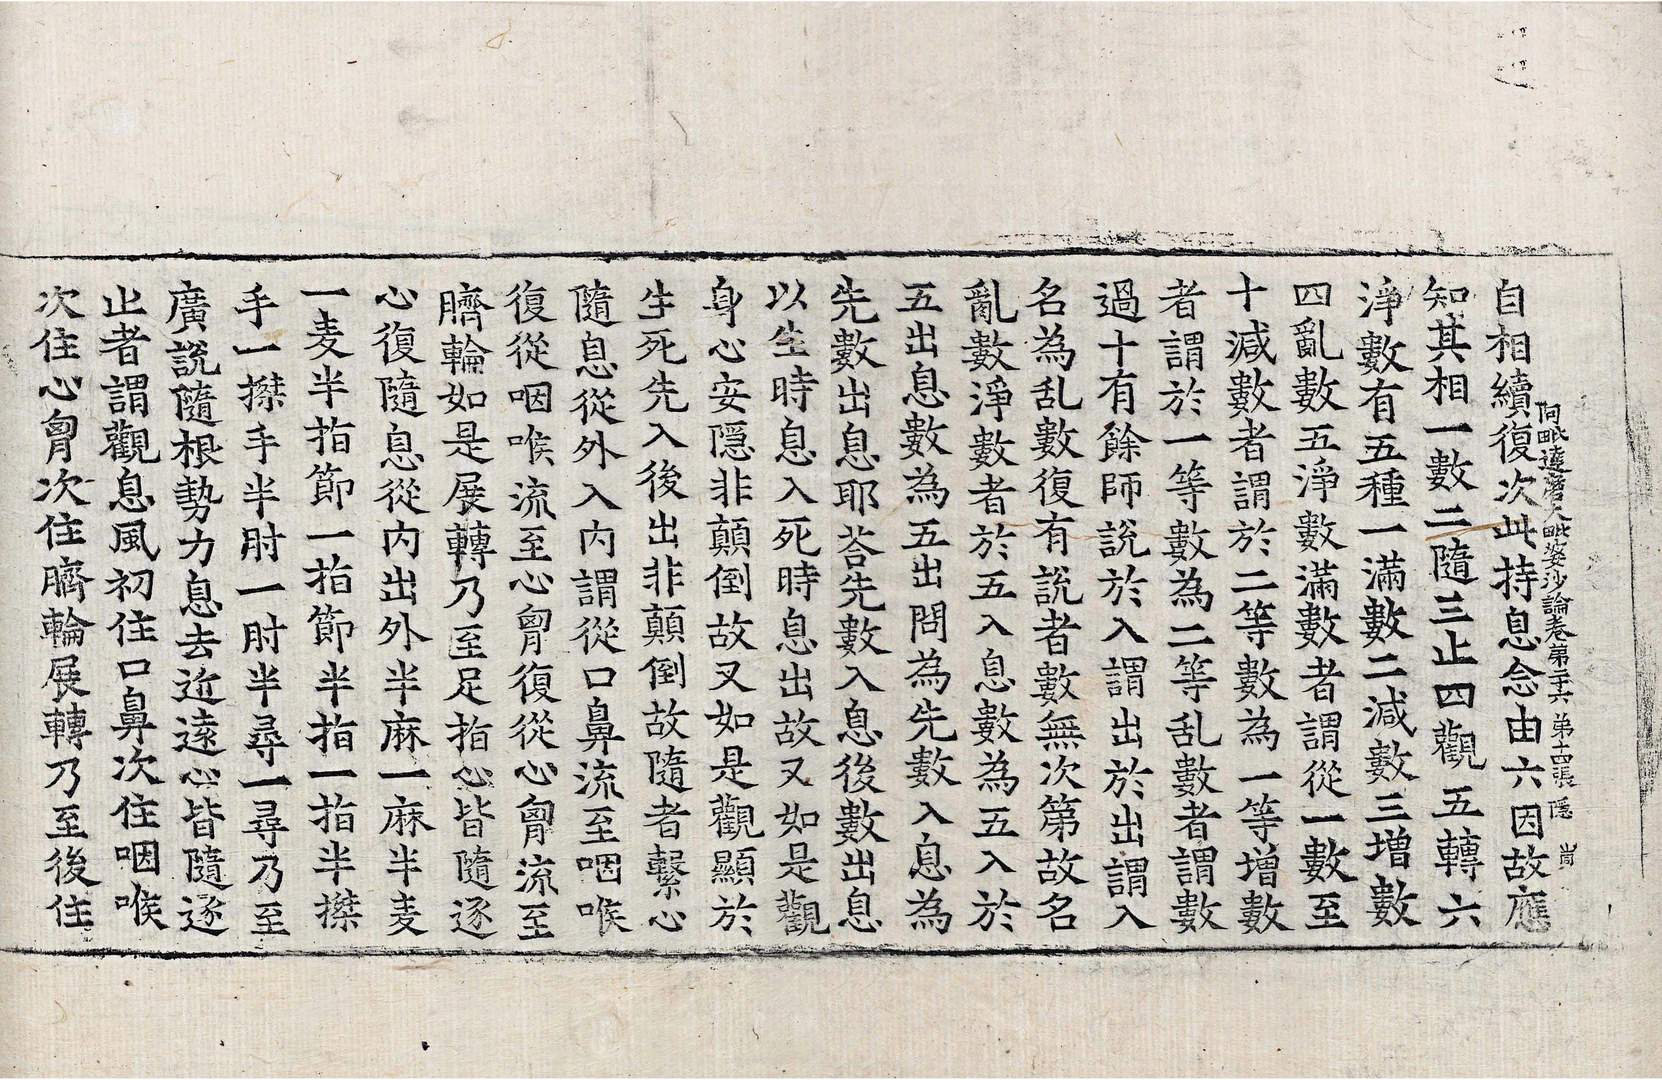 阿毗達磨大毗婆沙論卷第二十六 第十四張 隱 崗
自相續復次此持息念由六因故應
知其相一數二隨三止四觀五轉六
淨數有五種一滿數二減數三增數
四亂數五淨數滿數者謂從一數至
十減數者謂於二等數為一等增數
者謂於一等數為二等乱數者謂數
過十有餘師說於入謂出於出謂入
名為乱數復有說者數無次第故名
亂數淨數者於五入息數為五入於
五出息數為五出問為先數入息為
先數出息耶荅先數入息後數出息
以生時息入死時息出故又如是觀
身心安隱非顛倒故又如是觀顯於
生死先入後出非顛倒故隨者繫心
隨息從外入內謂從口鼻流至咽喉
復從咽喉流至心胷復從心胷流至
臍輪如是展轉乃至足指心皆隨逐
心復隨息從內出外半麻一麻半麦
一麦半指節一指節半指一指半搩
手一搩手半肘一肘半尋一尋乃至
廣說隨根勢力息去近遠心皆隨逐
止者謂觀息風初住口鼻次住咽喉
次住心胷次住臍輪展轉乃至後住